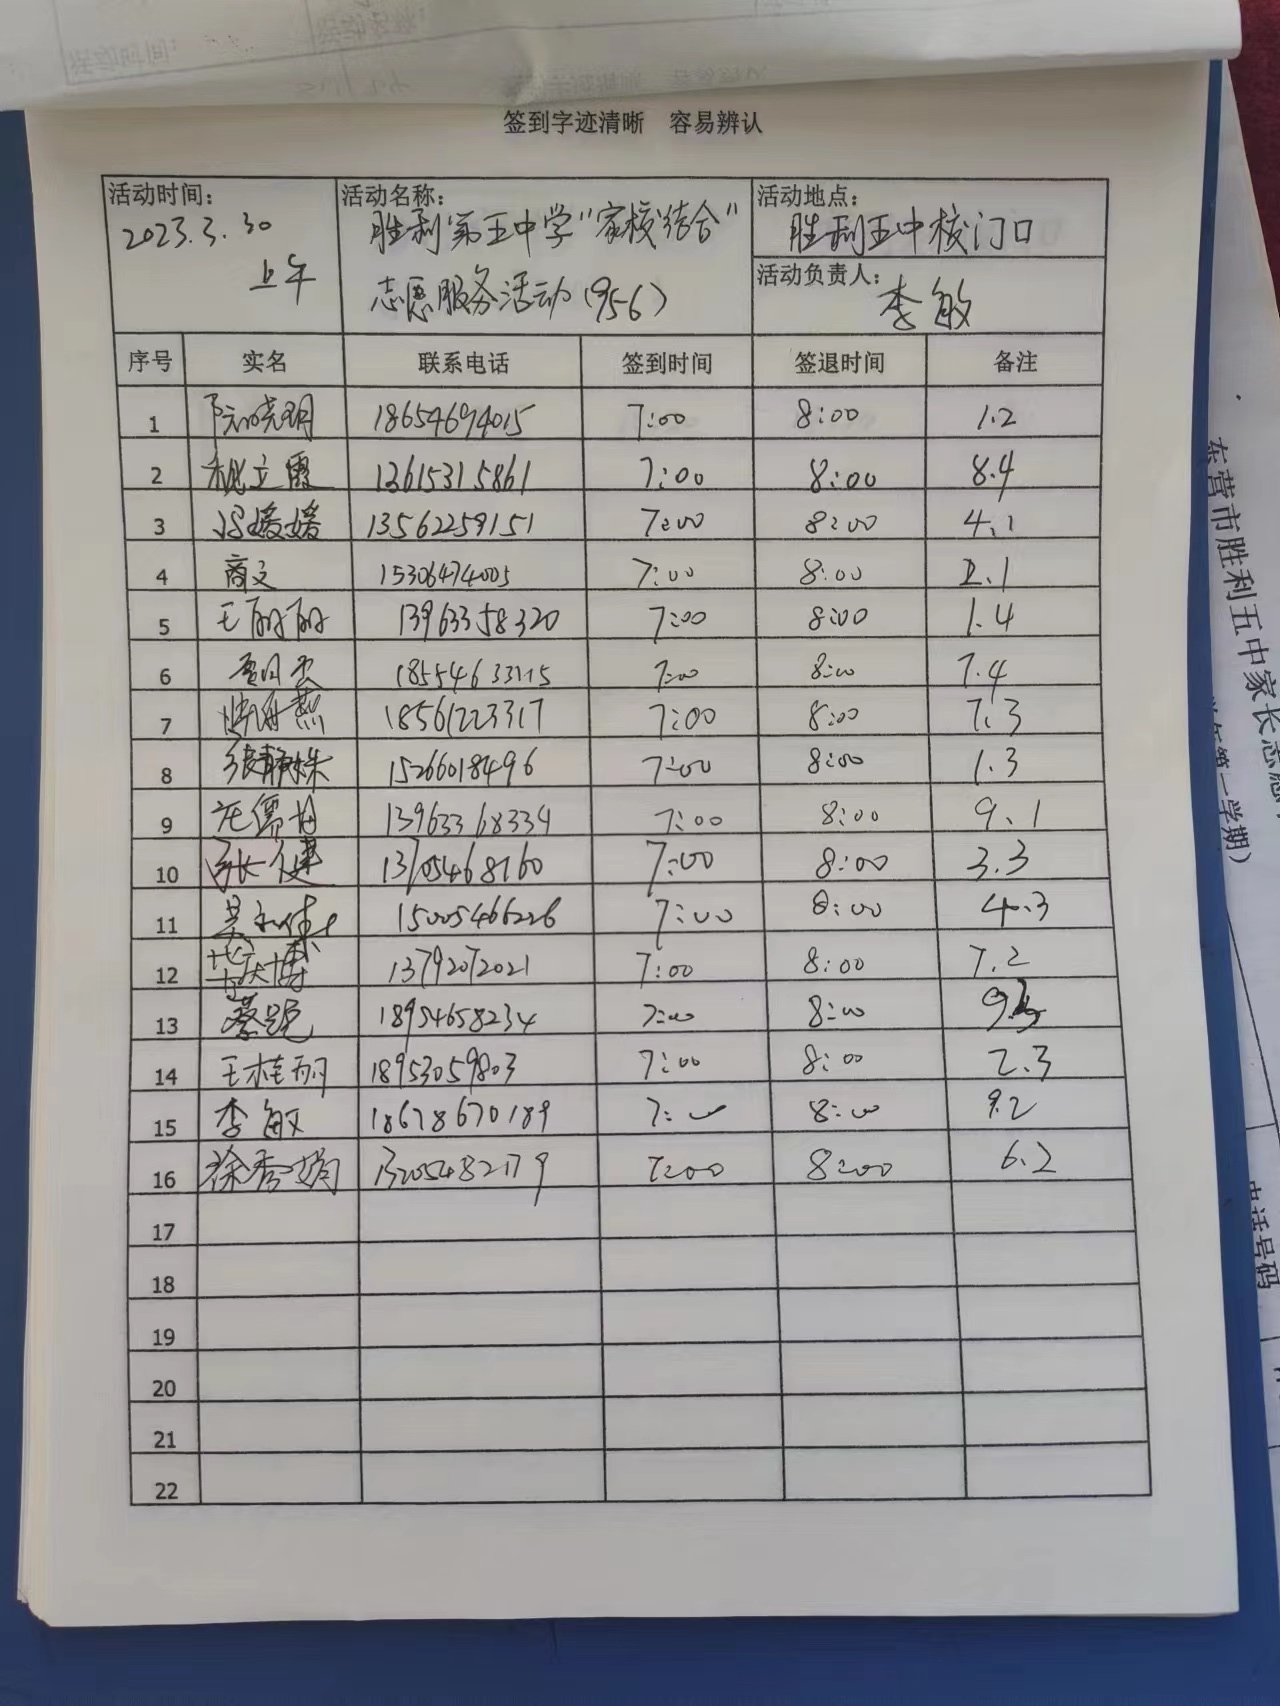 签到字迹清晰 容易辨认
活动时间:
2023.3.30
上午
活动名称:
胜利第五中学"家校结合"
志愿服务活动(956)
活动地点:
胜利五中校门口
活动负责人:
李敏
序号 实名 联系电话 签到时间 签退时间 备注
1 陈晓玥 18654694015 7:00 8:00 1.2
2 立霞 13615315861 7:00 8:00 8.4
3 冯媛媛 13562259151 7:00 8:00 4.1
4 商文 15306474005 7:00 8:00 2.1
5 王丽丽 13963358320 7:00 8:00 1.4
6 18554633115 7:00 8:00 7.4
7 18561223317 7:00 8:00 7.3
8 张静姝 15266018496 7:00 8:00 1.3
9 13963368334 7:00 8:00 9.1
10 张健 13705468160 7:00 8:00 3.3
11 15005466226 7:00 8:00 4.3
12 13792072021 7:00 8:00 7.2
13 蔡 18954658234 7:00 8:00
14 王桂丽 18953059803 7:00 8:00 2.3
15 李敏 18678670189 7:00 8:00 9.2
16 徐秀娟 13205482179 7:00 8:00 6.2
17
18
19
20
21
22
东营市胜利五中家长志愿
学年第一学期)
电话号码